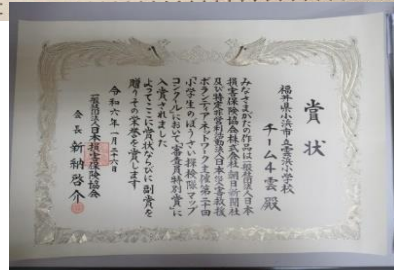 賞状
福井県小浜市立雲浜小学校
チーム4雲殿
みなさまがたの作品は一般社団法人日本
損害保険協会株式会社朝日新聞社
及び特定非営利活動法人日本災害救援
ボランティアネットワーク主催第二十回
小学生のぼうさい探検隊マップ
コンクールにおいて「審査員特別賞」に
入賞されました
よってここに賞状ならびに副賞を
贈りその栄誉を賞します
令和六年一月二十六日
一般社団法人日本損害保険協会
会長 新納啓介